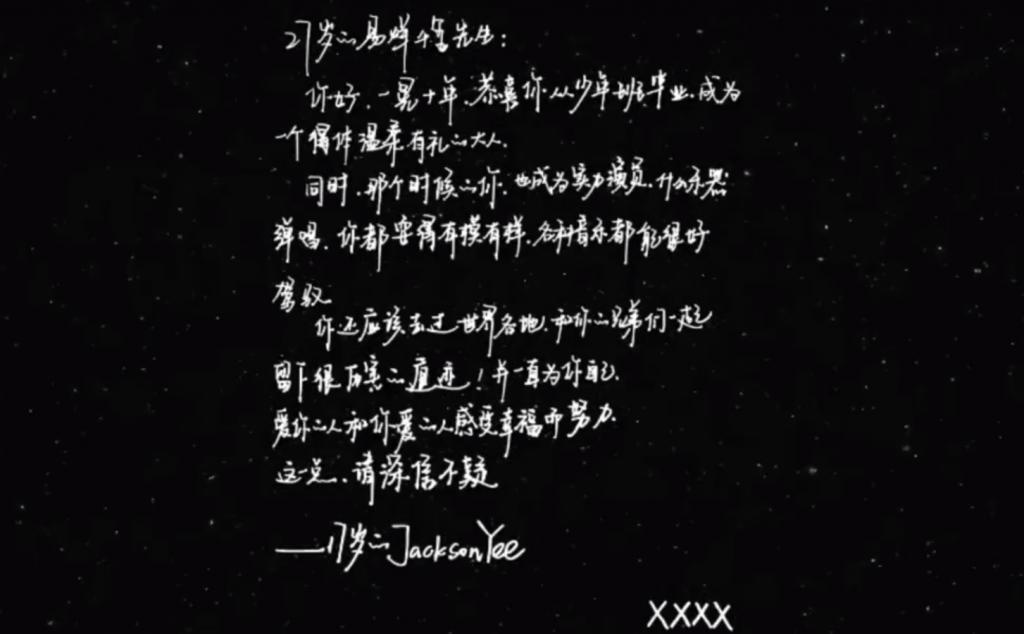 27岁的易烊千玺先生：
你好，一晃十年，恭喜你从少年班毕业，成为
一个得体温柔有礼的大人.
同时，那个时候的你，也成为实力演员，什么乐器
弹唱，你都耍得有模有样，各种音乐都能很好
驾驭
你还应该去过世界各地，和你的兄弟们一起
留下很厉害的痕迹！并一直为你自己，
爱你的人和你爱的人感受幸福而努力.
这一点，请深信不疑
——17岁的Jackson Yee
XXXX